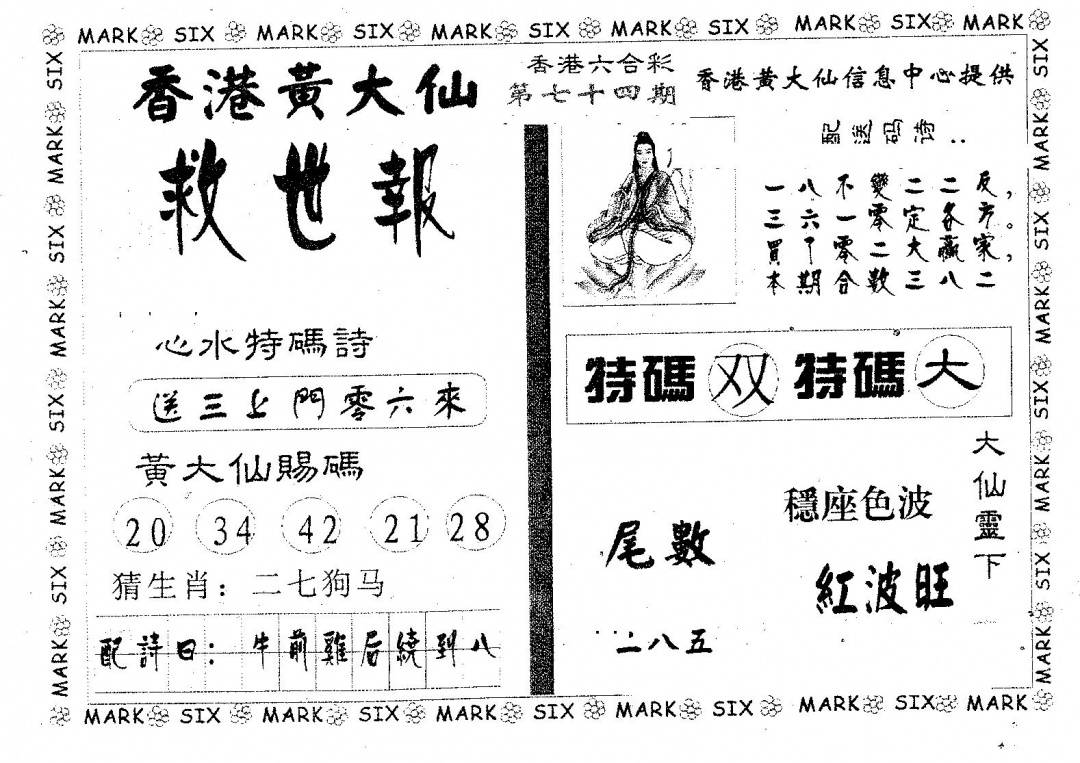 MARK SIX MARK SIX MARK SIX MARK SIX MARK SIX MARK
香港黃大仙
救世報
香港六合彩
第七十四期
香港黄大仙信息中心提供
配送码诗：
一八不變二二反，
三六一零定各方。
買丫零二大贏家，
本期合数三八二
心水特碼詩
送三上門零六來
黃大仙賜碼
20 34 42 21 28
猜生肖：二七狗马
配詩曰：牛前雞后繞到八
特碼 双 特碼 大
尾數
二八五
穩座色波
紅波旺
大仙靈下
MARK SIX MARK SIX MARK SIX MARK SIX MARK SIX MARK
SIX MARK SIX MARK SIX MARK SIX MARK
SIX MARK SIX MARK SIX MARK SIX MARK